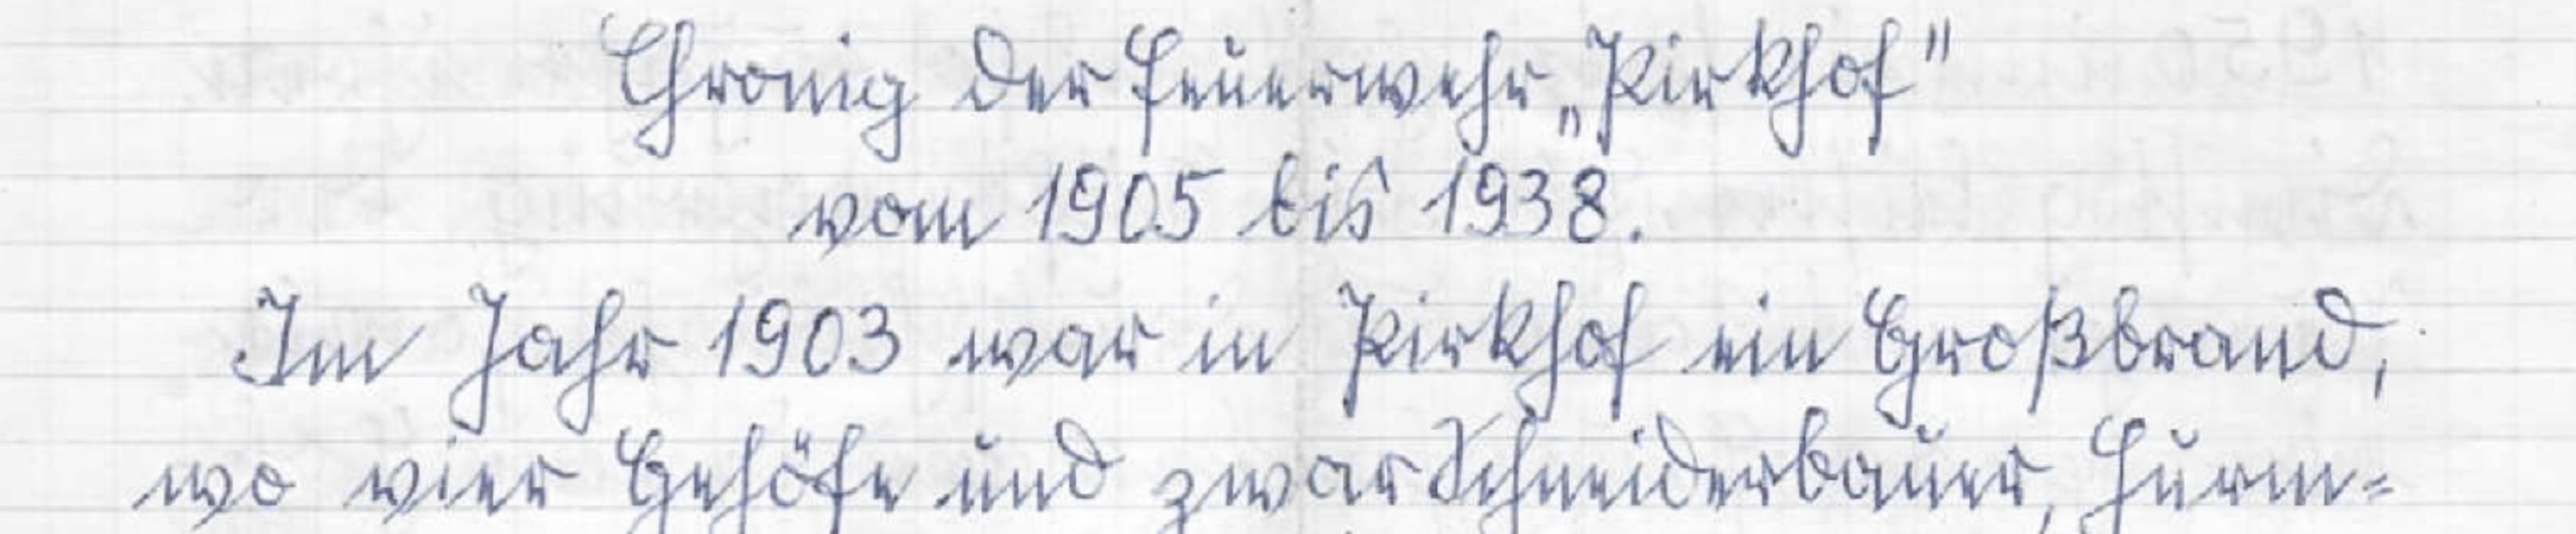 Chronig der Feuerwehr „Pirkhof"
vom 1905 bis 1938.
Im Jahr 1903 war in Pirkhof ein Großbrand,
wo vier Gehöfe und zwar Schneiderbauer,